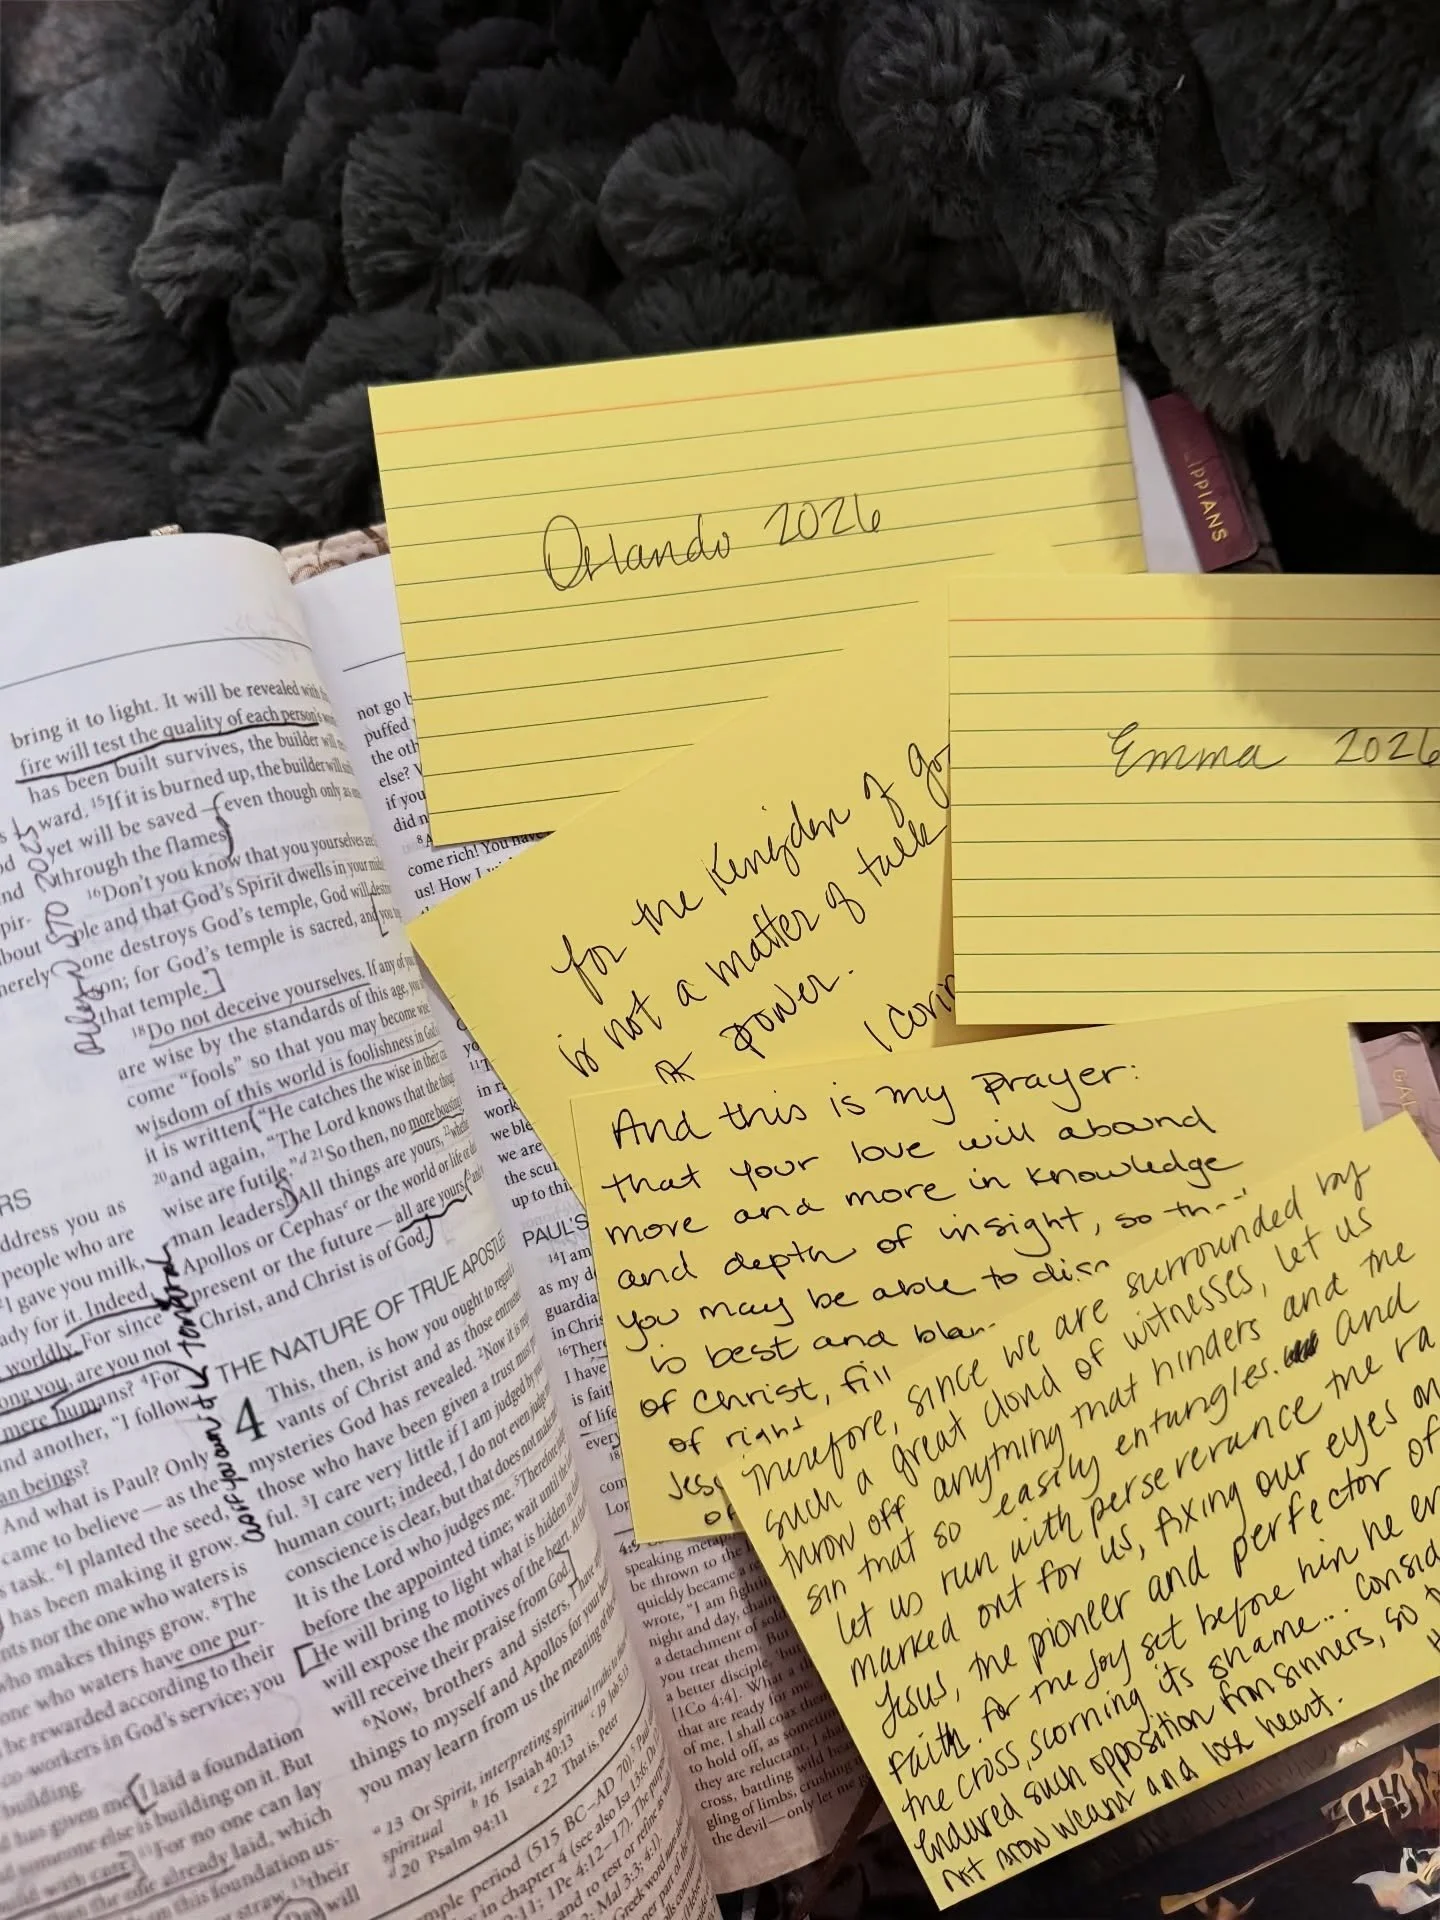 Orlando 2026
IPPIANS
Emma 2026
GAL
for the Kingdom of Go
is not a matter of talk
power.
1 Corin
And this is my prayer:
that your love will abound
more and more in knowledge
and depth of insight, so th
you may be able to disc
is best and blam
of Christ, fill
of right
Jesu
of
Therefore, since we are surrounded by
such a great cloud of witnesses, let us
throw off anything that hinders and the
sin that so easily entangles. And
let us run with perserverance the ra
marked out for us, fixing our eyes on
Jesus, the pioneer and perfector of
faith. for the joy set before him he en
the cross, scorning it's shame... consid
endured such opposition from sinners, so
not grow weary and lose heart.
bring it to light. It will be revealed with
fire will test the quality of each person's
has been built survives, the builder will
ward. 15If it is burned up, the builder will
yet will be saved—even though only as
through the flames.
16Don't you know that you yourselves are
ple and that God's Spirit dwells in your
one destroys God's temple, God will
on; for God's temple is sacred, and you
that temple.
18Do not deceive yourselves. If any of you
are wise by the standards of this age, you
come “fools” so that you may become wise.
wisdom of this world is foolishness in
it is written: “He catches the wise in their
20and again, “The Lord knows that the
wise are futile.”d 21So then, no more boasting
man leaders! All things are yours, 22
Apollos or Cephase or the world or life or
present or the future—all are yours, 23
Christ, and Christ is of God.
THE NATURE OF TRUE APOSTLE
4 This, then, is how you ought to regard
vants of Christ and as those entrusted
mysteries God has revealed. 2Now it is
those who have been given a trust must
ful. 3I care very little if I am judged by
human court; indeed, I do not even judge
conscience is clear, but that does not make
It is the Lord who judges me. 5Therefore
before the appointed time; wait until the
He will bring to light what is hidden in
will expose the motives of the heart. At
will receive their praise from God.
6Now, brothers and sisters, I have
things to myself and Apollos for your
you may learn from us the meaning of the
a 13 Or Spirit, interpreting spiritual truths to
spiritual b 16 Isaiah 40:13 c 19 Job 5:13
d 20 Psalm 94:11 e 22 That is, Peter
mple period (515 BC–AD 70).
RS
ddress you as
people who are
I gave you milk,
ady for it. Indeed,
worldly. For since
ong you, are you not
mere humans? 4For
nd another, “I follow
an beings?
And what is Paul? Only
came to believe—as the
s task. 6I planted the seed,
has been making it grow.
nts nor the one who waters is
who makes things grow. 8The
one who waters have one pur-
be rewarded according to their
co-workers in God's service; you
building.
has given me, I laid a foundation
someone else is building on it. But
build with care. 11For no one can lay
than the one already laid, which
on this foundation us-
straw, 13their
Day will
temporal
not go b
puffed
the oth
else? V
if you
did n
come rich! You have
us! How I
work
we ble
we are
the scu
up to thi
PAUL'S
14I am
as my d
guardia
in Chris
16There
I have
is faith
of life
every
com
Lor
4:9
speaking metap
be thrown to the
quickly became a
wrote, “I am fightin
night and day, chain
detachment of sold
you treat them). But
a better disciple, ‘but
[1Co 4:4]. What a th
that are ready for me
of me. I shall coax them
to hold off, as sometim
they are reluctant, I sha
cross, battling wild bea
gling of limbs, crushing
the devil—only let me g